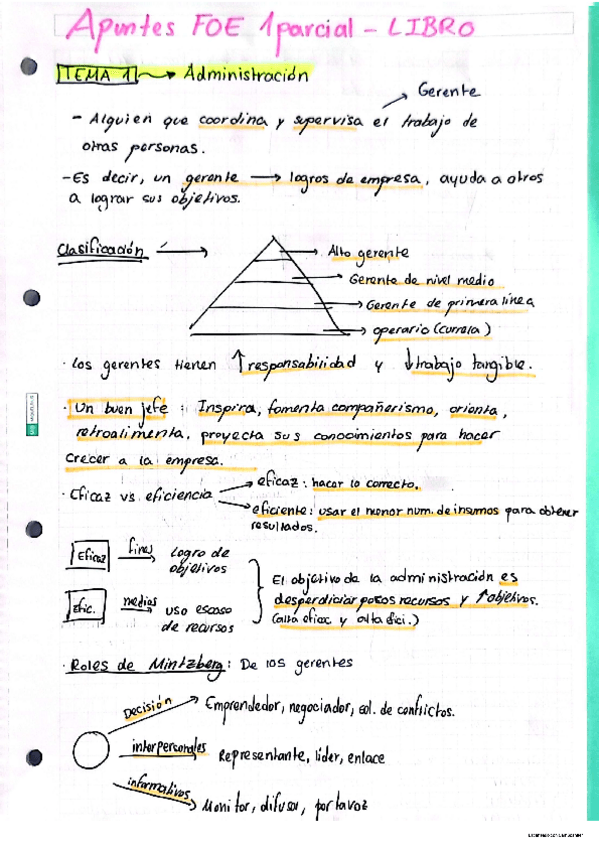 Apuntes FOE 1parcial - LIBRO
TEMA 1 → Administración
Gerente
- Alguien que coordina y supervisa el trabajo de
otras personas.
- Es decir, un gerente → logros de empresa, ayuda a otros
a lograr sus objetivos.
Clasificación →
Alto gerente
Gerente de nivel medio
Gerente de primera línea
operario (currela)
· Los gerentes tienen ↑ responsabilidad y ↓ trabajo tangible.
· Un buen jefe : Inspira, fomenta compañerismo, orienta,
retroalimenta, proyecta sus conocimientos para hacer
crecer a la empresa.
· Eficaz vs eficiencia
eficaz : hacer lo correcto.
eficiente : usar el menor num. de insumos para obtener
resultados.
Eficaz fines → logro de
objetivos
Efic. medios → uso escaso
de recursos
El objetivo de la administración es
desperdiciar pocos recursos y ↑ objetivos.
(alta eficac y alta efici.)
· Roles de Mintzberg : De los gerentes
Decisión → Emprendedor, negociador, sol. de conflictos.
interpersonales → Representante, líder, enlace
informativos → Monitor, difusor, portavoz